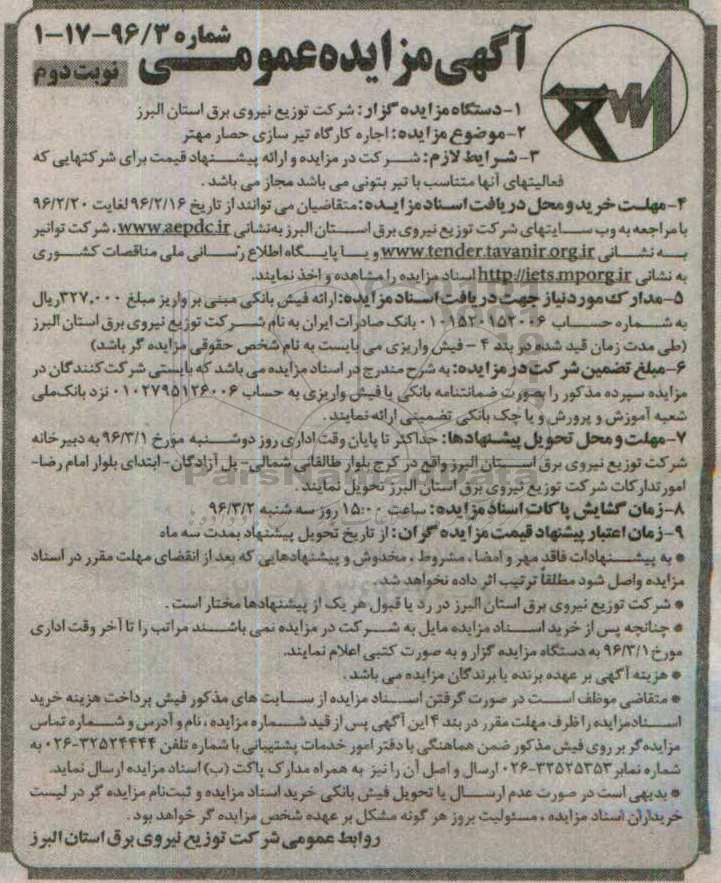 آگهی مزایده عمومی
شماره ۹۶/۳-۱۷-۱
نوبت دوم
۱-دستگاه مزایده گزار: شرکت توزیع نیروی برق استان البرز
۲-موضوع مزایده: اجاره کارگاه تیر سازی حصار مهتر
۳-شرایط لازم: شرکت در مزایده و ارائه پیشنهاد قیمت برای شرکتهایی که
فعالیتهای آنها متناسب با تیر بتونی می باشد مجاز می باشد.
۴-مهلت خرید و محل دریافت اسناد مزایده: متقاضیان می توانند از تاریخ ۹۶/۲/۱۶ لغایت ۹۶/۲/۲۰
با مراجعه به وب سایتهای شرکت توزیع نیروی برق استان البرز به نشانی www.aepdc.ir، شرکت توانیر
به نشانی www.tender.tavanir.org.ir و یا پایگاه اطلاع رسانی ملی مناقصات کشوری
به نشانی http://iets.mporg.ir اسناد مزایده را مشاهده و اخذ نمایند.
۵-مدارک مورد نیاز جهت دریافت اسناد مزایده: ارائه فیش بانکی مبنی بر واریز مبلغ ۳۲۷,۰۰۰ ریال
به شماره حساب ۰۱۰۱۵۲۰۱۵۲۰۰۶ بانک صادرات ایران به نام شرکت توزیع نیروی برق استان البرز
(طی مدت زمان قید شده در بند ۴ - فیش واریزی می بایست به نام شخص حقوقی مزایده گر باشد)
۶-مبلغ تضمین شرکت در مزایده: به شرح مندرج در اسناد مزایده می باشد که بایستی شرکت کنندگان در
مزایده سپرده مذکور را بصورت ضمانتنامه بانکی یا فیش واریزی به حساب ۰۱۰۲۷۹۵۱۲۶۰۰۶ نزد بانک ملی
شعبه آموزش و پرورش و یا چک بانکی تضمینی ارائه نمایند.
۷-مهلت و محل تحویل پیشنهادها: حداکثر تا پایان وقت اداری روز دوشنبه مورخ ۹۶/۳/۱ به دبیرخانه
شرکت توزیع نیروی برق استان البرز واقع در کرج بلوار طالقانی شمالی- پل آزادگان- ابتدای بلوار امام رضا-
امور تدارکات شرکت توزیع نیروی برق استان البرز تحویل نمایند.
۸-زمان گشایش پاکات اسناد مزایده: ساعت ۱۵:۰۰ روز سه شنبه ۹۶/۳/۲
۹-زمان اعتبار پیشنهاد قیمت مزایده گران: از تاریخ تحویل پیشنهاد بمدت سه ماه
* به پیشنهادات فاقد مهر و امضا، مشروط، مخدوش و پیشنهادهایی که بعد از انقضای مهلت مقرر در اسناد
مزایده واصل شود مطلقاً ترتیب اثر داده نخواهد شد.
* شرکت توزیع نیروی برق استان البرز در رد یا قبول هر یک از پیشنهادها مختار است.
* چنانچه پس از خرید اسناد مزایده مایل به شرکت در مزایده نمی باشند مراتب را تا آخر وقت اداری
مورخ ۹۶/۳/۱ به دستگاه مزایده گزار و به صورت کتبی اعلام نمایند.
* هزینه آگهی بر عهده برنده یا برندگان مزایده می باشد.
* متقاضی موظف است در صورت گرفتن اسناد مزایده از سایت های مذکور فیش پرداخت هزینه خرید
اسناد مزایده را ظرف مهلت مقرر در بند ۴ این آگهی پس از قید شماره مزایده، نام و آدرس و شماره تماس
مزایده گر بر روی فیش مذکور ضمن هماهنگی با دفتر امور خدمات پشتیبانی با شماره تلفن ۳۲۵۲۴۴۴۴-۰۲۶ به
شماره نمابر ۳۲۵۲۵۳۵۳-۰۲۶ ارسال و اصل آن را نیز به همراه مدارک پاکت (ب) اسناد مزایده ارسال نماید.
* بدیهی است در صورت عدم ارسال یا تحویل فیش بانکی خرید اسناد مزایده و ثبت نام مزایده گر در لیست
خریداران اسناد مزایده، مسئولیت بروز هر گونه مشکل بر عهده شخص مزایده گر خواهد بود.
روابط عمومی شرکت توزیع نیروی برق استان البرز